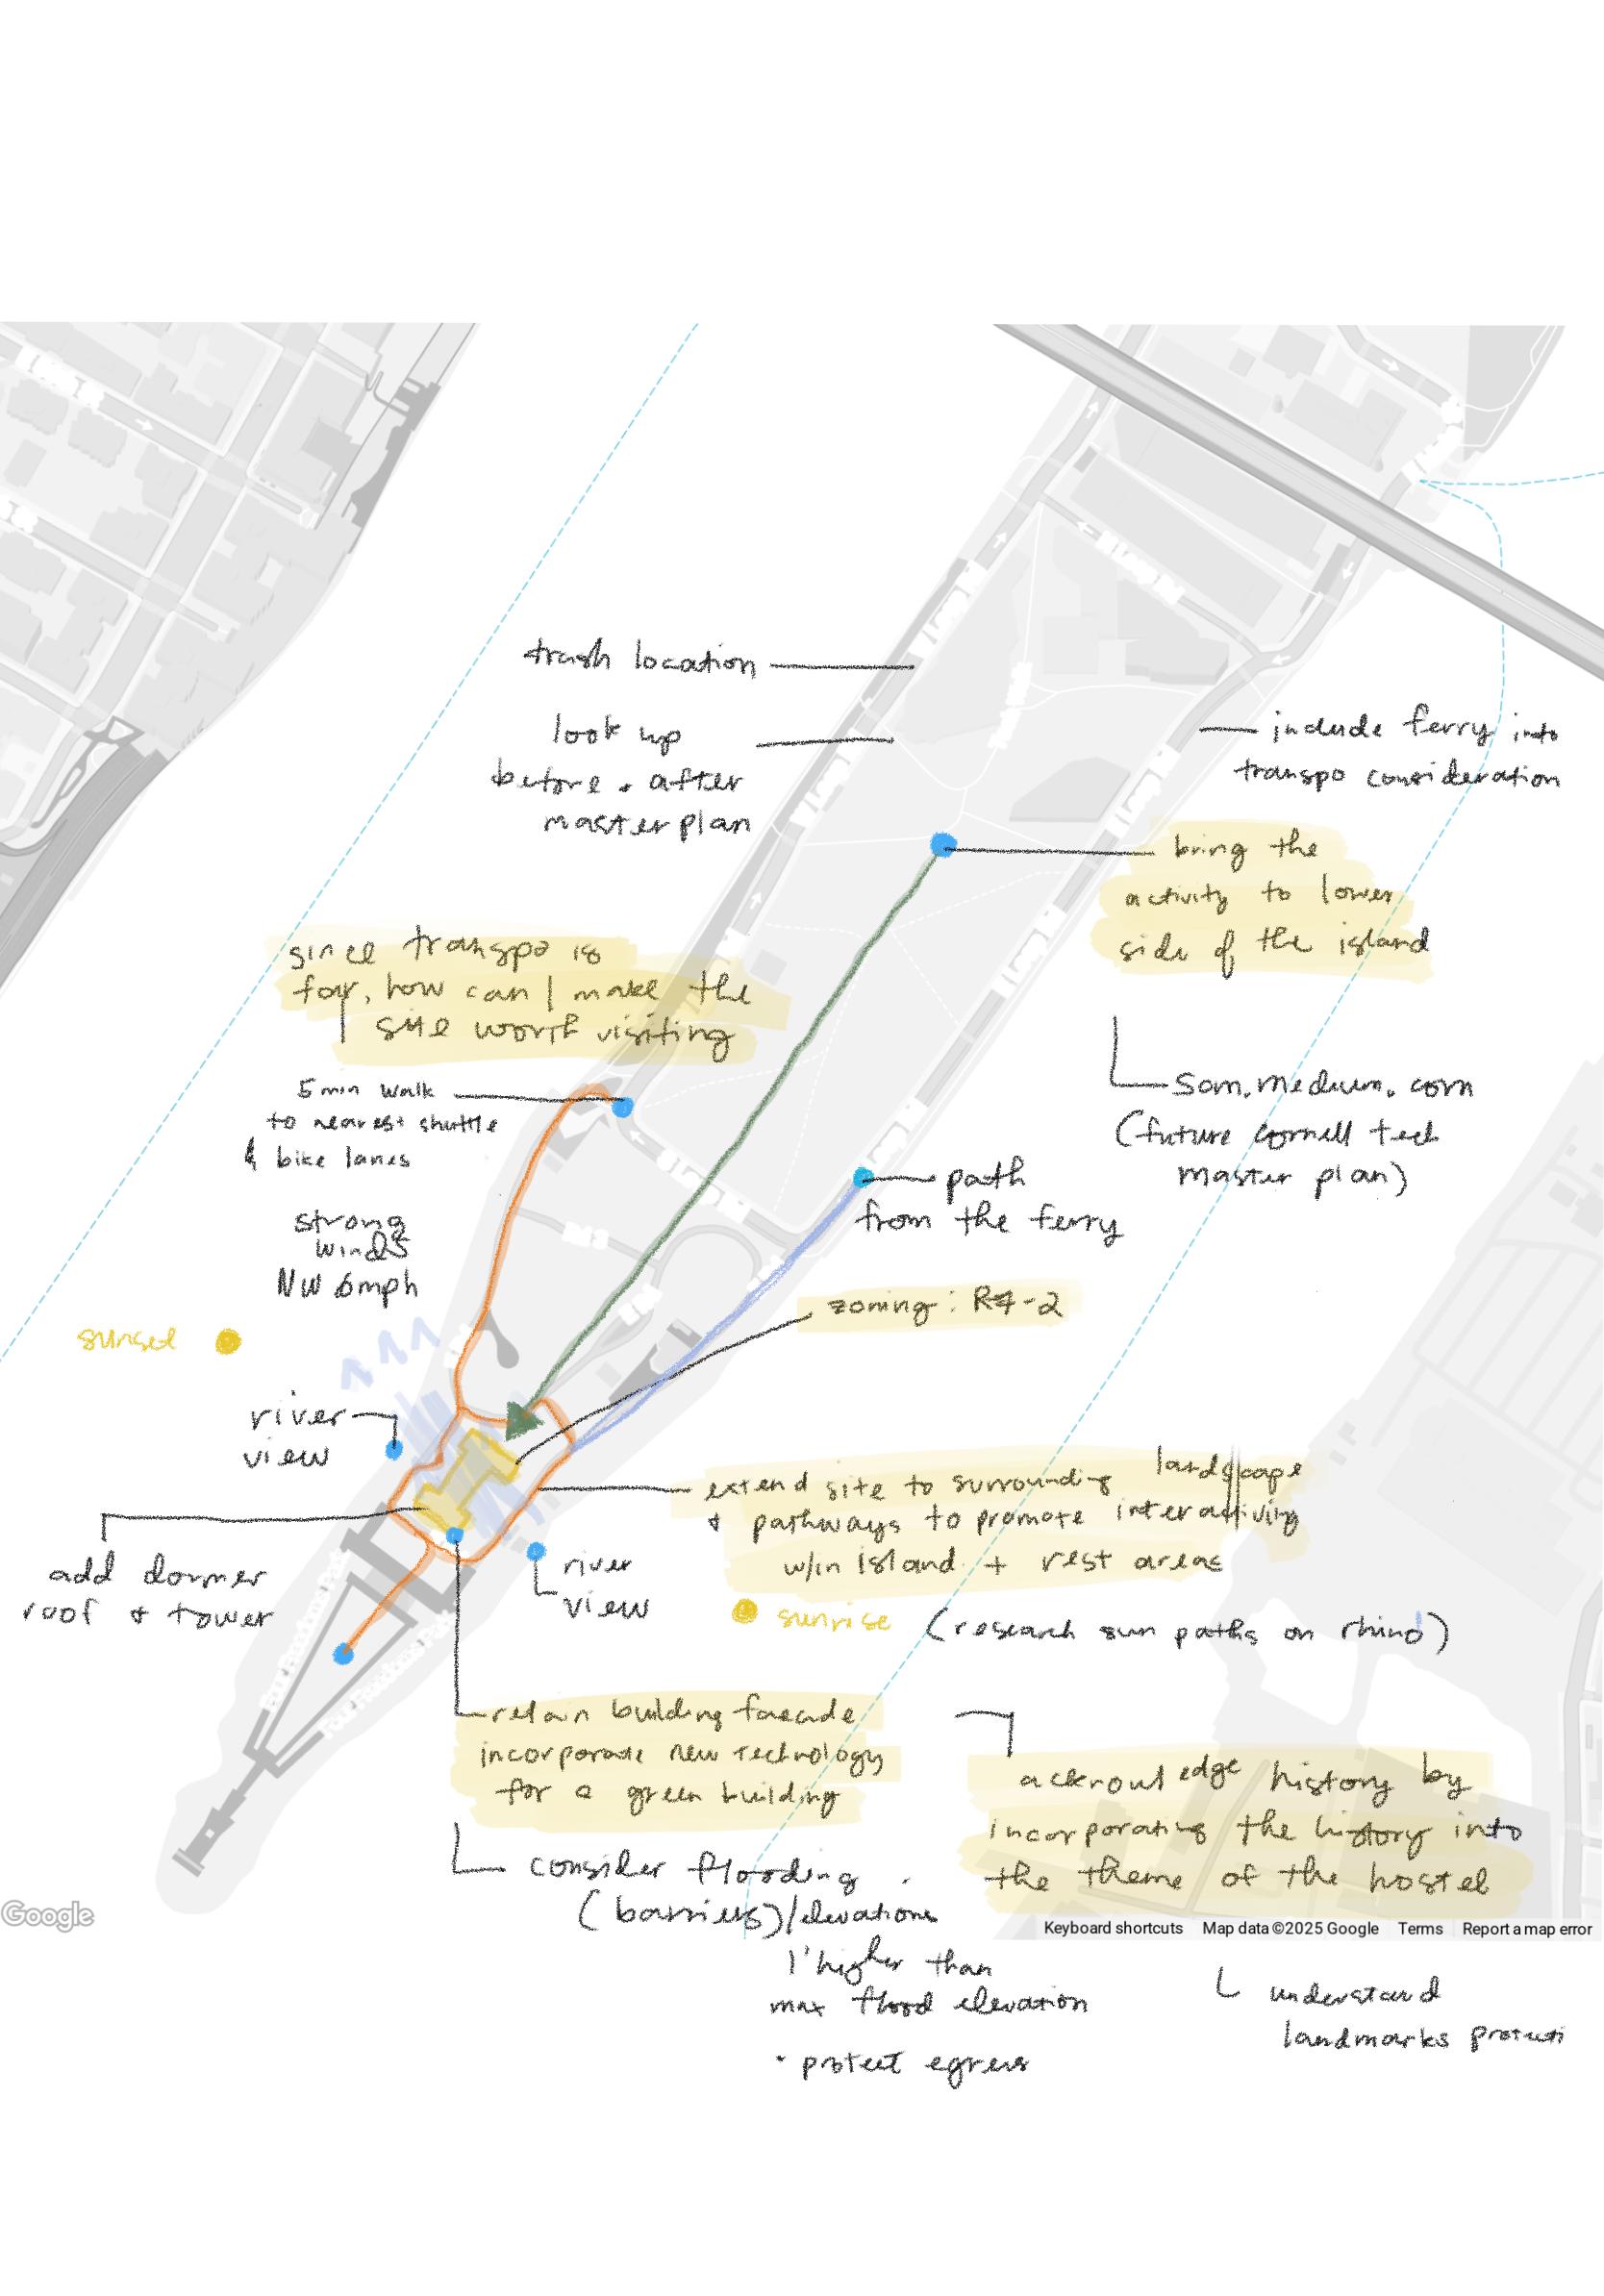 trash location
look up
before + after
master plan
include ferry into
transpo consideration
bring the
activity to lower
side of the island
since transpo is
far, how can I make the
site worth visiting
5 min walk
to nearest shuttle
& bike lanes
som.medium.com
(future cornell tech
master plan)
path
from the ferry
strong
winds
NW 6mph
zoning: R7-2
sunset
river
view
extend site to surrounding landscape
& pathways to promote interactivity
w/in island + rest areas
add dormer
roof & tower
river
view
sunrise (research sun paths on rhino)
retain building facade
incorporate new technology
for a green building
acknowledge history by
incorporating the history into
the theme of the hostel
consider flooding
(barriers)/elevations
1' higher than
max flood elevation
• protect egress
understand
landmarks
Google
Keyboard shortcuts Map data ©2025 Google Terms Report a map error